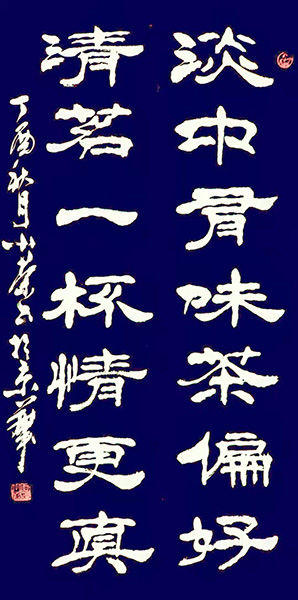 淡中有味茶偏好
清茗一杯情更真
丁酉秋月小荣书於京华